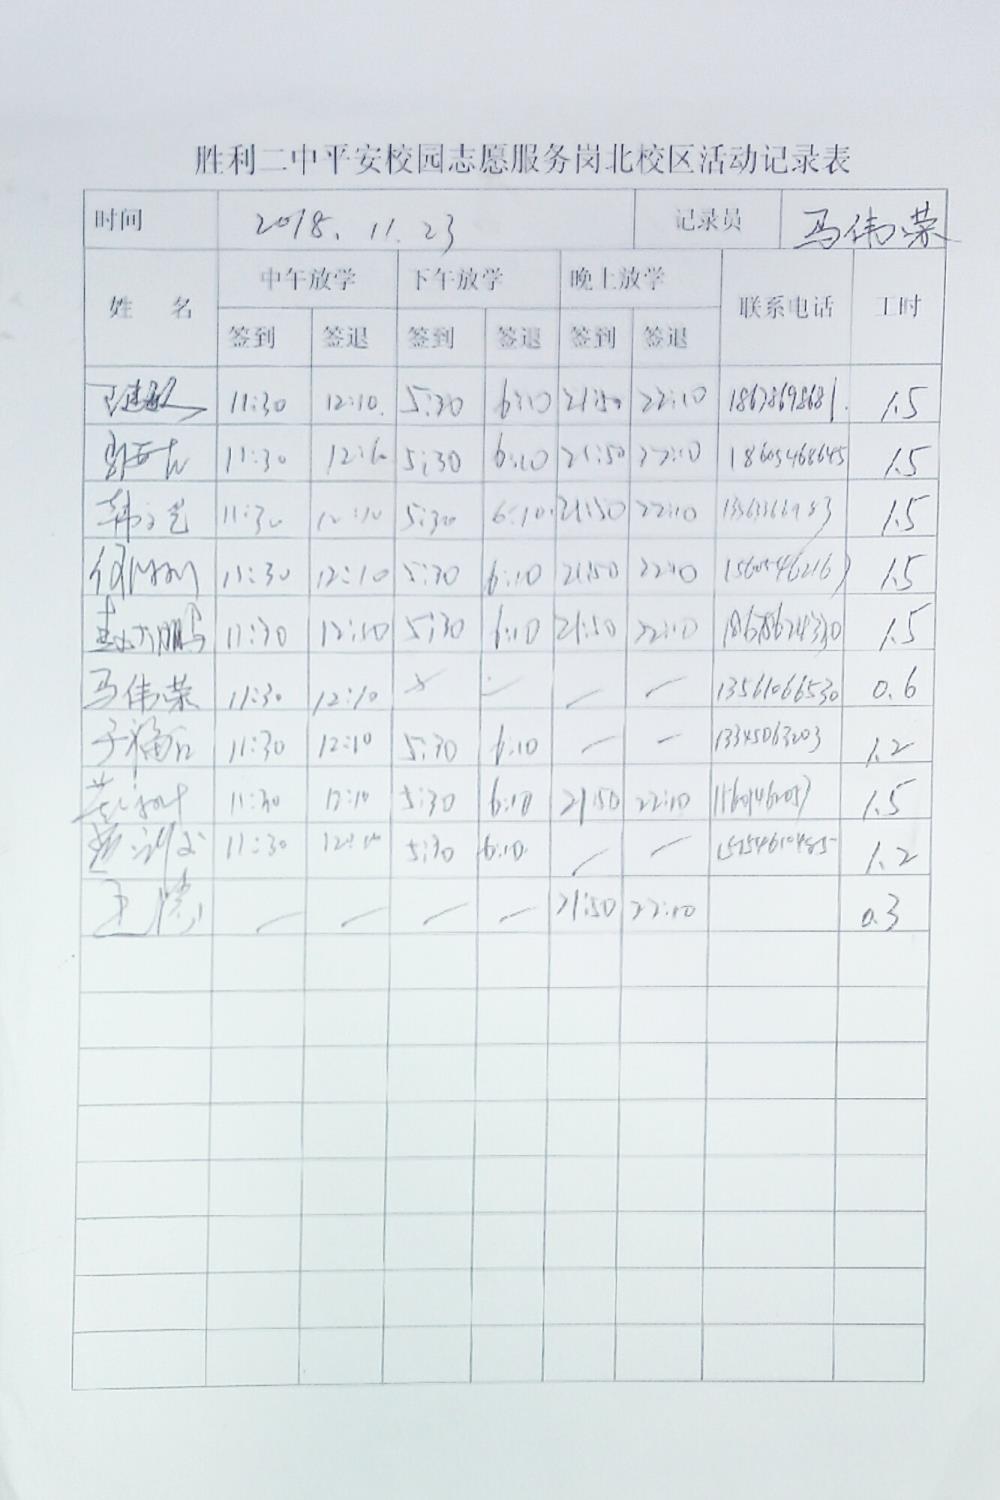 胜利二中平安校园志愿服务岗北校区活动记录表
时间 2018.11.23 记录员 马伟荣
姓 名 中午放学 下午放学 晚上放学 联系电话 工时
签到 签退 签到 签退 签到 签退
11:30 12:10 5:30 6:10 21:50 22:10 18678698681 1.5
11:30 12:10 5:30 6:10 21:50 22:10 18605468645 1.5
11:30 12:10 5:30 6:10 21:50 22:10 1.5
11:30 12:10 5:30 6:10 21:50 22:10 1.5
11:30 12:10 5:30 6:10 21:50 22:10 18678624330 1.5
马伟荣 11:30 12:10 13561066530 0.6
11:30 12:10 5:30 6:10 13345063203 1.2
11:30 12:10 5:30 6:10 21:50 22:10 1.5
11:30 12:10 5:30 6:10 1.2
21:50 22:10 0.3